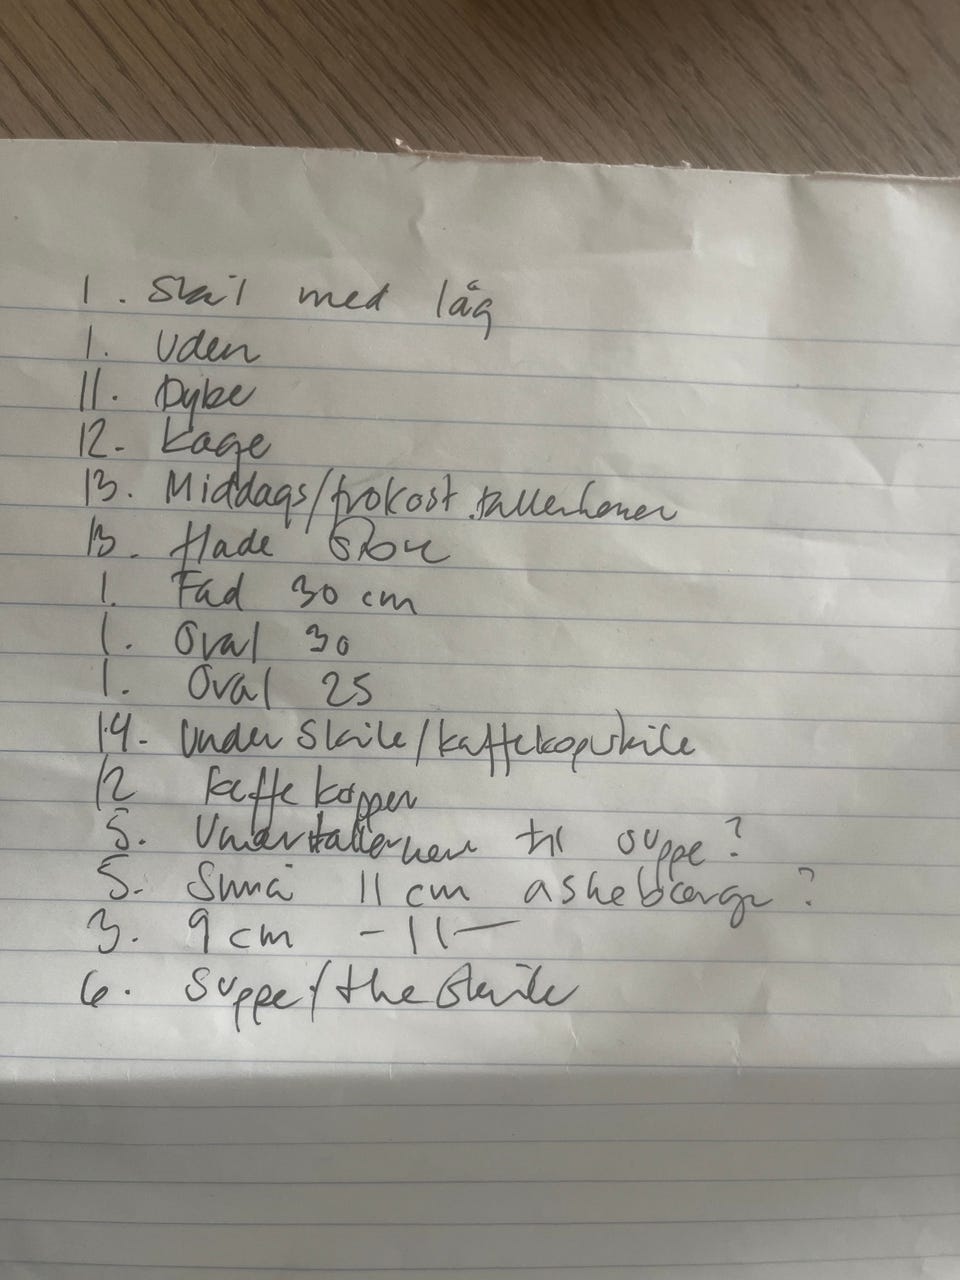 1. Skål med låg
1. Uden
11. Dybe
12. Kage
13. Middags/frokost.tallerkener
13. flade Store
1. Fad 30 cm
1. Oval 30
1. Oval 25
14. Under Skåle/kaffekopskåle
12 kaffe kopper
5. Undertallerkener til suppe?
5. Små 11 cm askebærge?
3. 9 cm -11-
6. Suppe/the Skåle